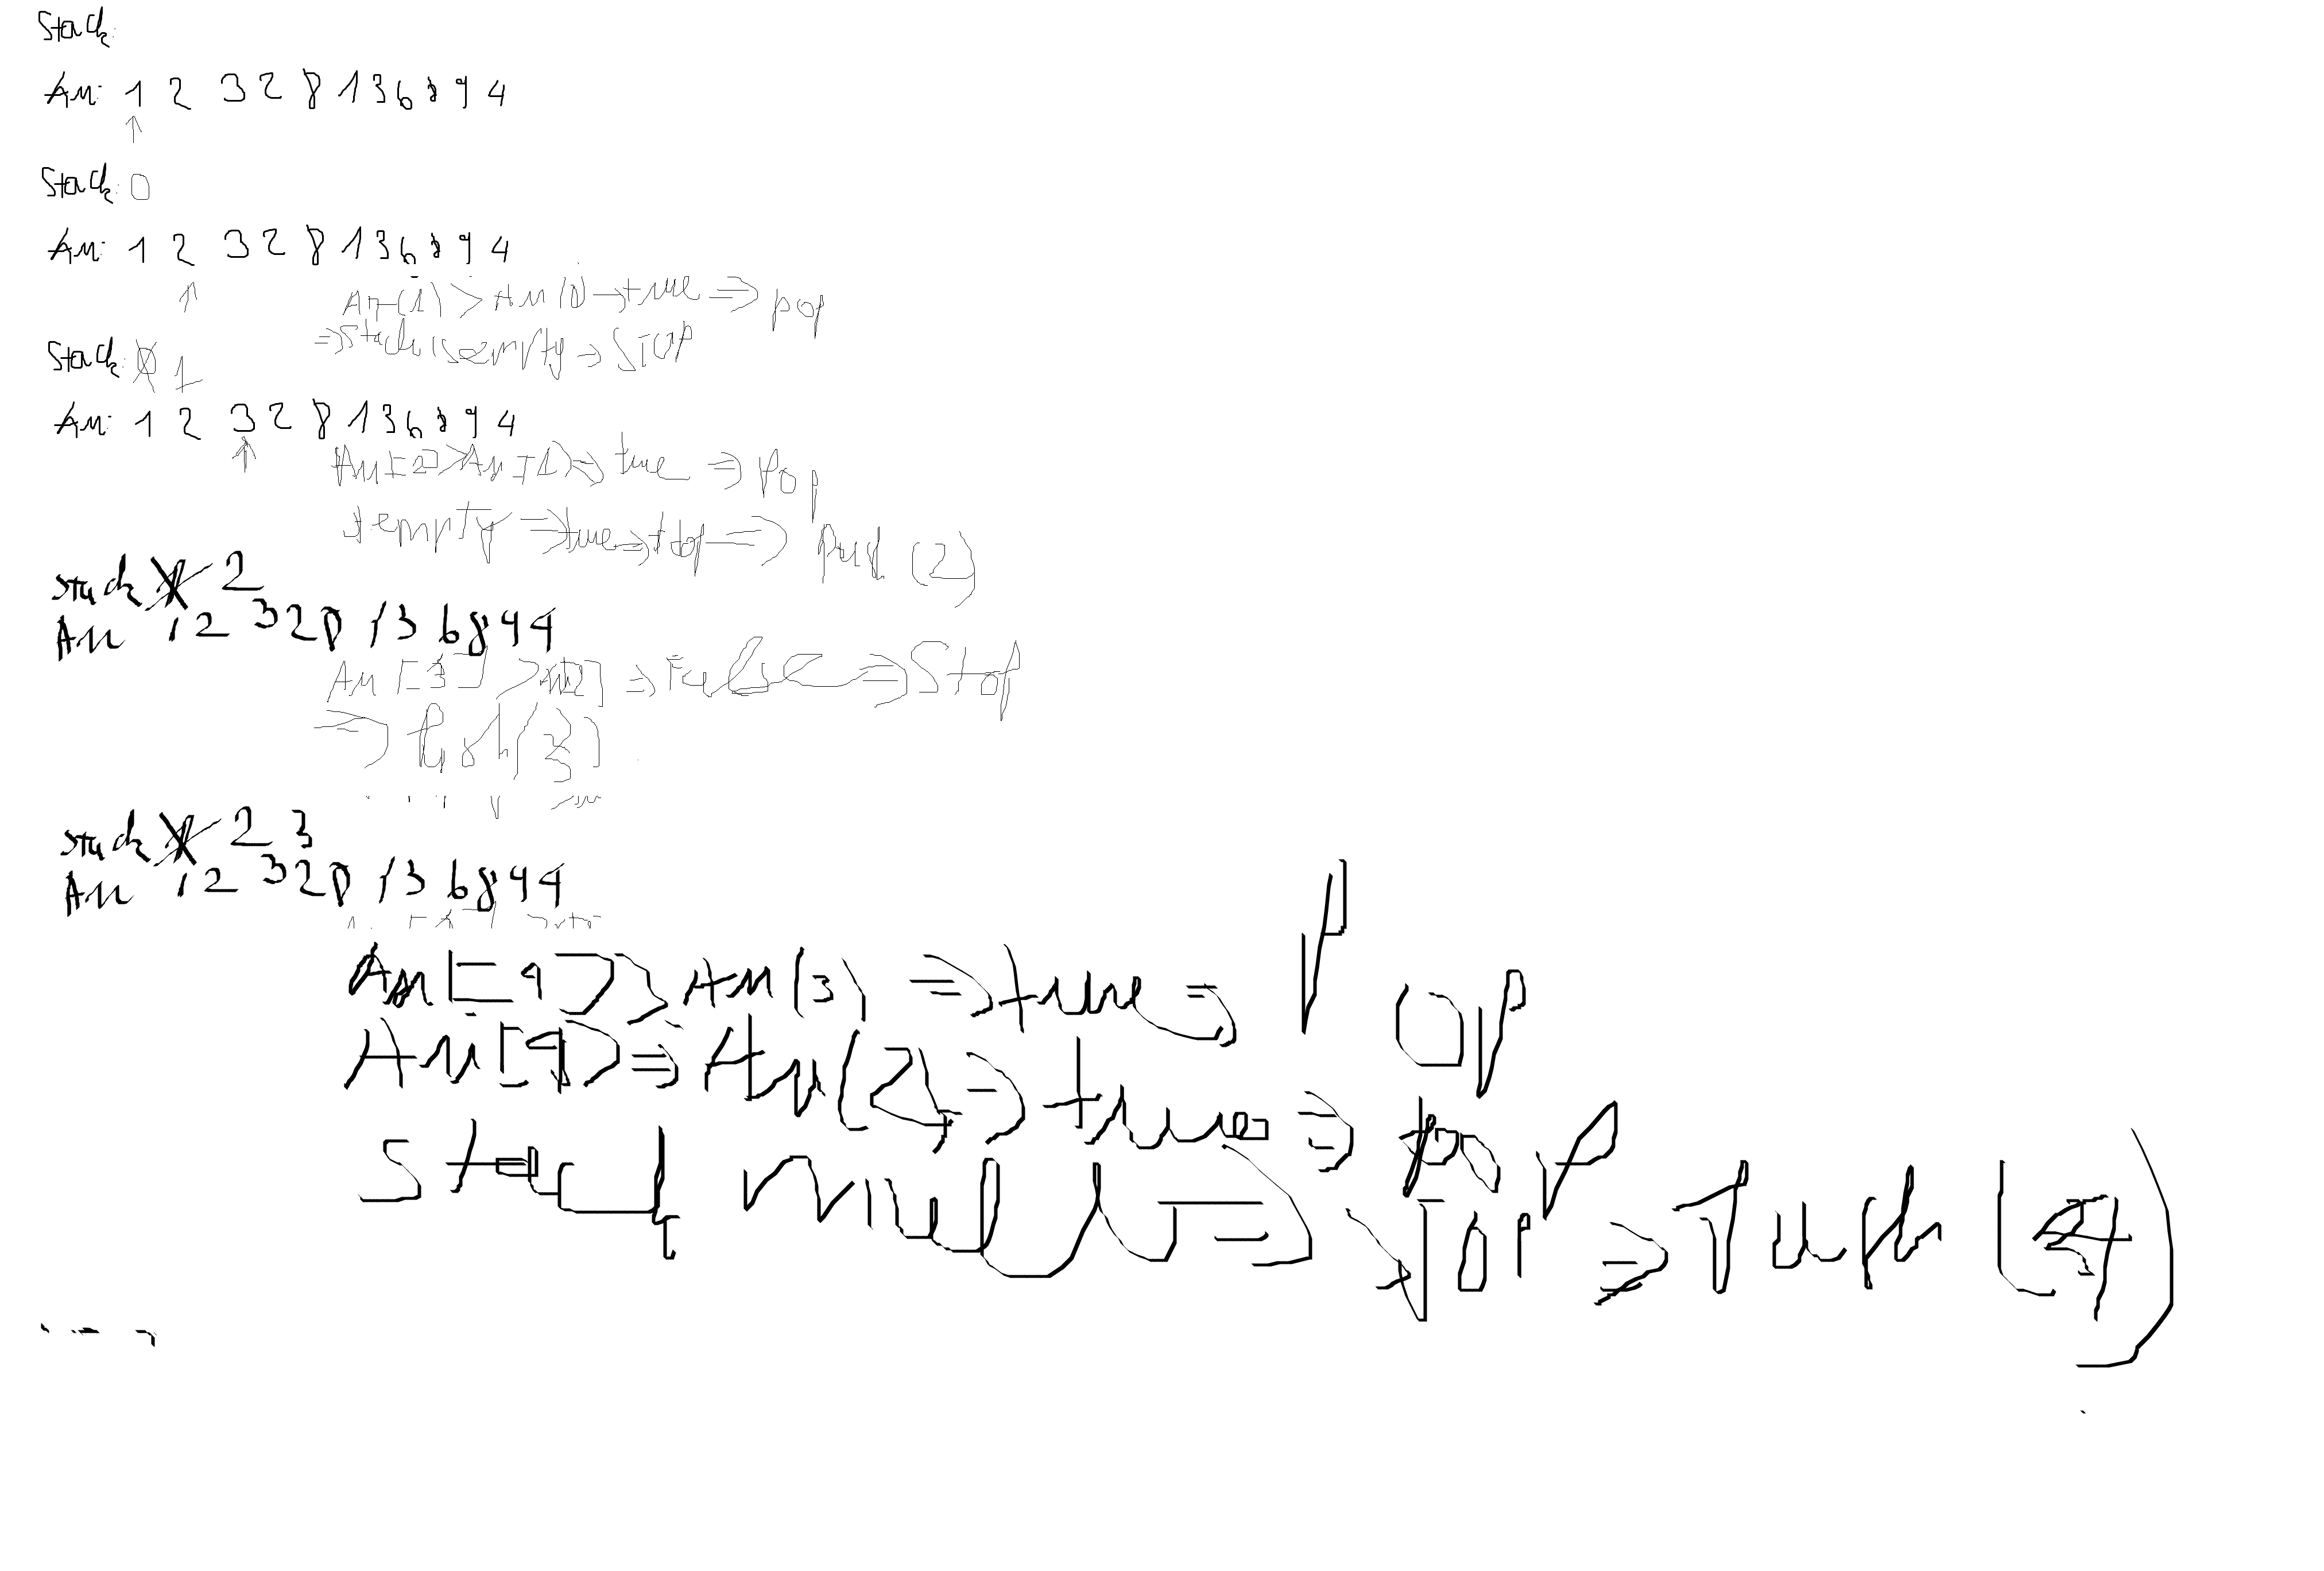 Stack:
Arr: 1 2 3 2 8 1 3 6 8 9 4
Stack: 0
Arr: 1 2 3 2 8 1 3 6 8 9 4
Arr(1) > Arr(0) → true ⇒ pop
⇒ Stack is empty ⇒ STOP
Stack: 0 1
Arr: 1 2 3 2 8 1 3 6 8 9 4
Arr[2] > Arr[1] ⇒ true ⇒ pop
empty ⇒ true ⇒ stop ⇒ (2)
stack 1 2
Arr 1 2 3 2 8 1 3 6 8 9 4
Arr[3] > Arr[2] ⇒ False ⇒ Stop
⇒ Push(3)
stack 1 2 3
Arr 1 2 3 2 8 1 3 6 8 9 4
Arr[4] > Arr(3) ⇒ true ⇒ POP
Arr[4] ⇒ Arr(2) ⇒ true ⇒ pop
Stack null ⇒ ⇒ Push (4)